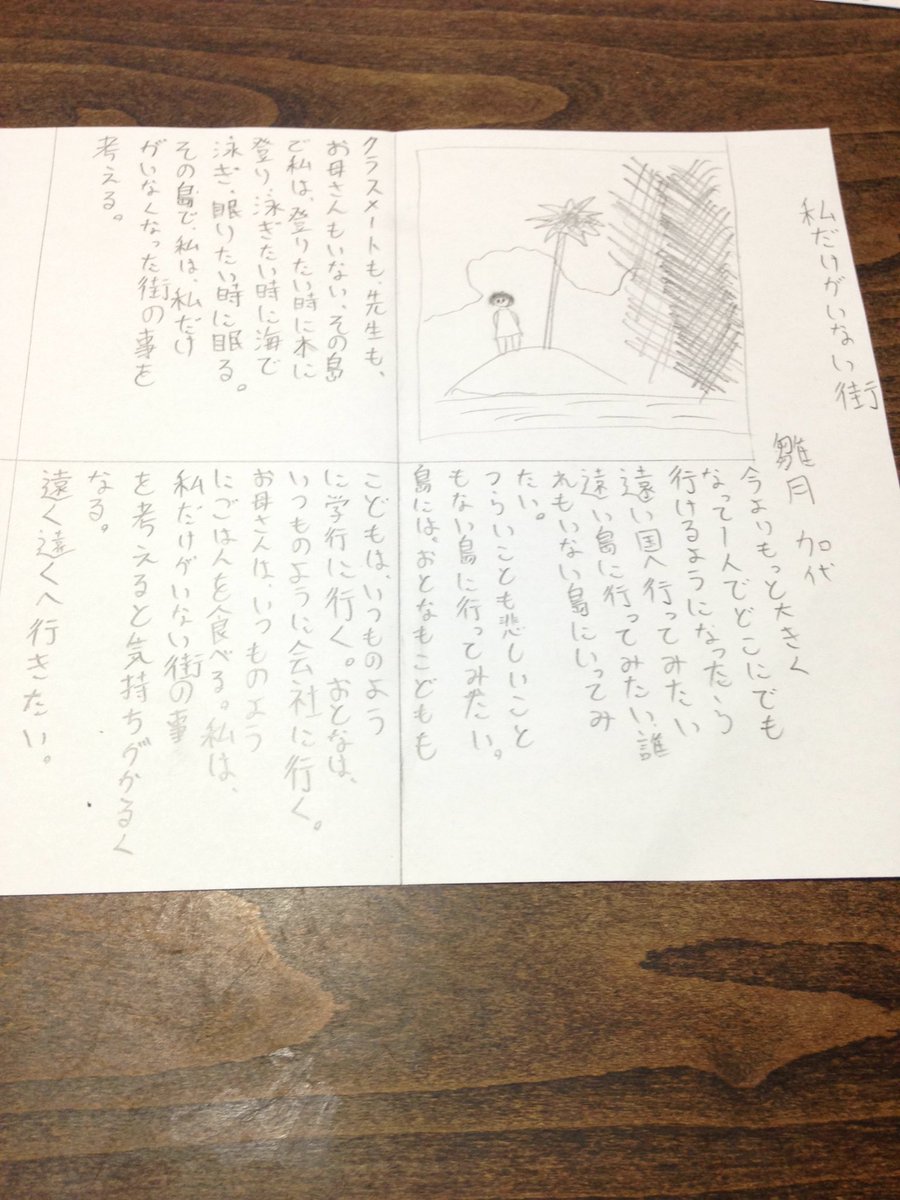 私だけがいない街
雛月 加代
今よりもっと大きく
なって1人でどこにでも
行けるようになったら
遠い国へ行ってみたい
遠い島に行ってみたい、誰
れもいない島にいってみ
たい。
つらいことも悲しいこと
もない島に行ってみたい。
島には。おとなもこどもも
クラスメートも、先生も、
お母さんもいない、その島
で私は、登りたい時に木に
登り、泳ぎたい時に海で
泳ぎ、眠りたい時に眠る。
その島で、私は、私だけ
がいなくなった街の事を
考える。
こどもは、いつものよう
に学行に行く。おとなは、
いつものように会社に行く。
お母さんは、いつものよう
にごはんを食べる。私は、
私だけがいない街の事
を考えると気持ちがかるく
なる。
遠く遠くへ行きたい。